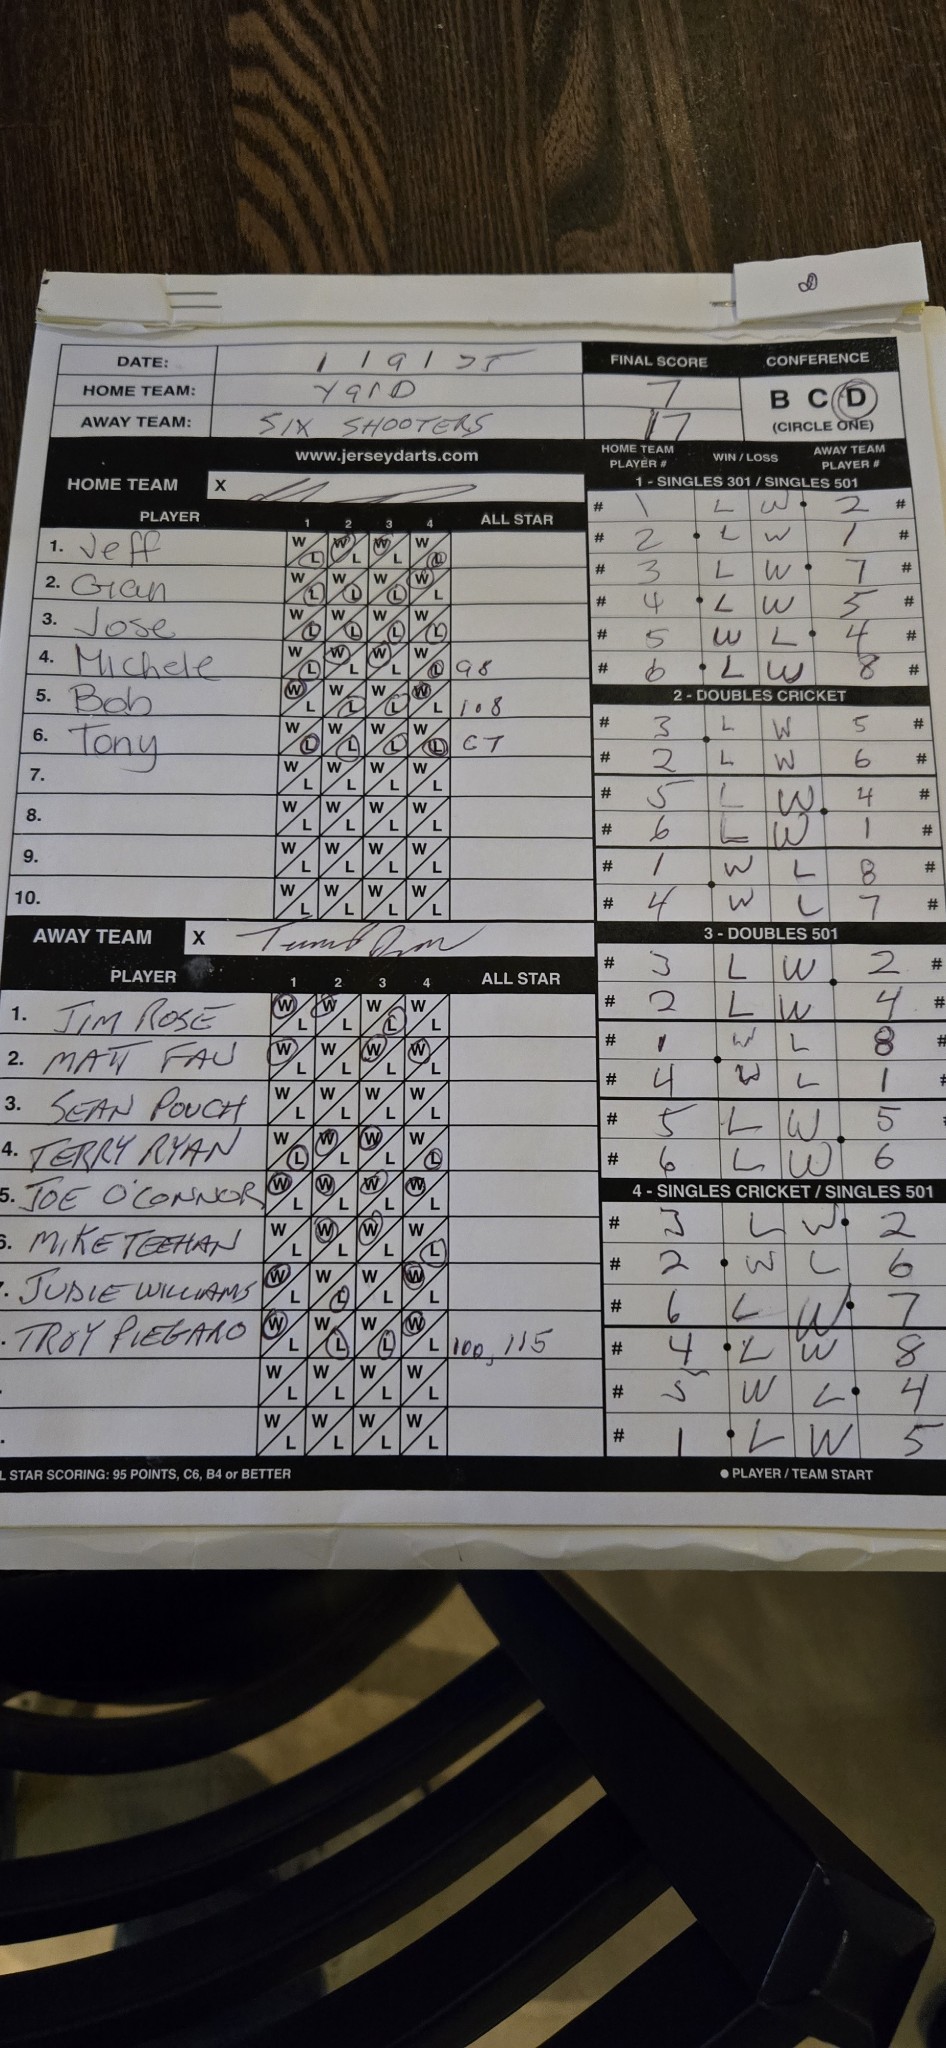 8
DATE: 1 19 125 FINAL SCORE CONFERENCE
HOME TEAM: YarD 7 B C D
AWAY TEAM: SIX SHOOTERS 17 (CIRCLE ONE)
www.jerseydarts.com HOME TEAM PLAYER # WIN / LOSS AWAY TEAM PLAYER #
HOME TEAM X
1 - SINGLES 301 / SINGLES 501
PLAYER 1 2 3 4 ALL STAR
# 1 L W 2 #
1. Jeff W L W L W L W L
# 2 L W 1 #
2. Gian W L W L W L W L
# 3 L W 7 #
3. Jose W L W L W L W L
# 4 L W 5 #
4. Michele W L W L W L W L 98
# 5 W L 4 #
5. Bob W L W L W L W L 108
# 6 L W 8 #
6. Tony W L W L W L W L C7
7. W L W L W L W L
8. W L W L W L W L
9. W L W L W L W L
10. W L W L W L W L
2 - DOUBLES CRICKET
# 3 L W 5 #
# 2 L W 6 #
# 5 L W 4 #
# 6 L W 1 #
# 1 W L 8 #
# 4 W L 7 #
AWAY TEAM X
PLAYER 1 2 3 4 ALL STAR
1. JIM ROSE W L W L W L W L
2. MATT FAU W L W L W L W L
3. SEAN POUCH W L W L W L W L
4. TERRY RYAN W L W L W L W L
5. JOE O'CONNOR W L W L W L W L
6. MIKE TEEHAN W L W L W L W L
. JUDIE WILLIAMS W L W L W L W L
. TROY PIEGARO W L W L W L W L 100, 115
. W L W L W L W L
. W L W L W L W L
3 - DOUBLES 501
# 3 L W 2 #
# 2 L W 4 #
# 1 W L 8 #
# 4 W L 1 #
# 5 L W 5
# 6 L W 6
4 - SINGLES CRICKET / SINGLES 501
# 3 L W 2
# 2 W L 6
# 6 L W 7
# 4 L W 8
# 5 W L 4
# 1 L W 5
L STAR SCORING: 95 POINTS, C6, B4 or BETTER ● PLAYER / TEAM START